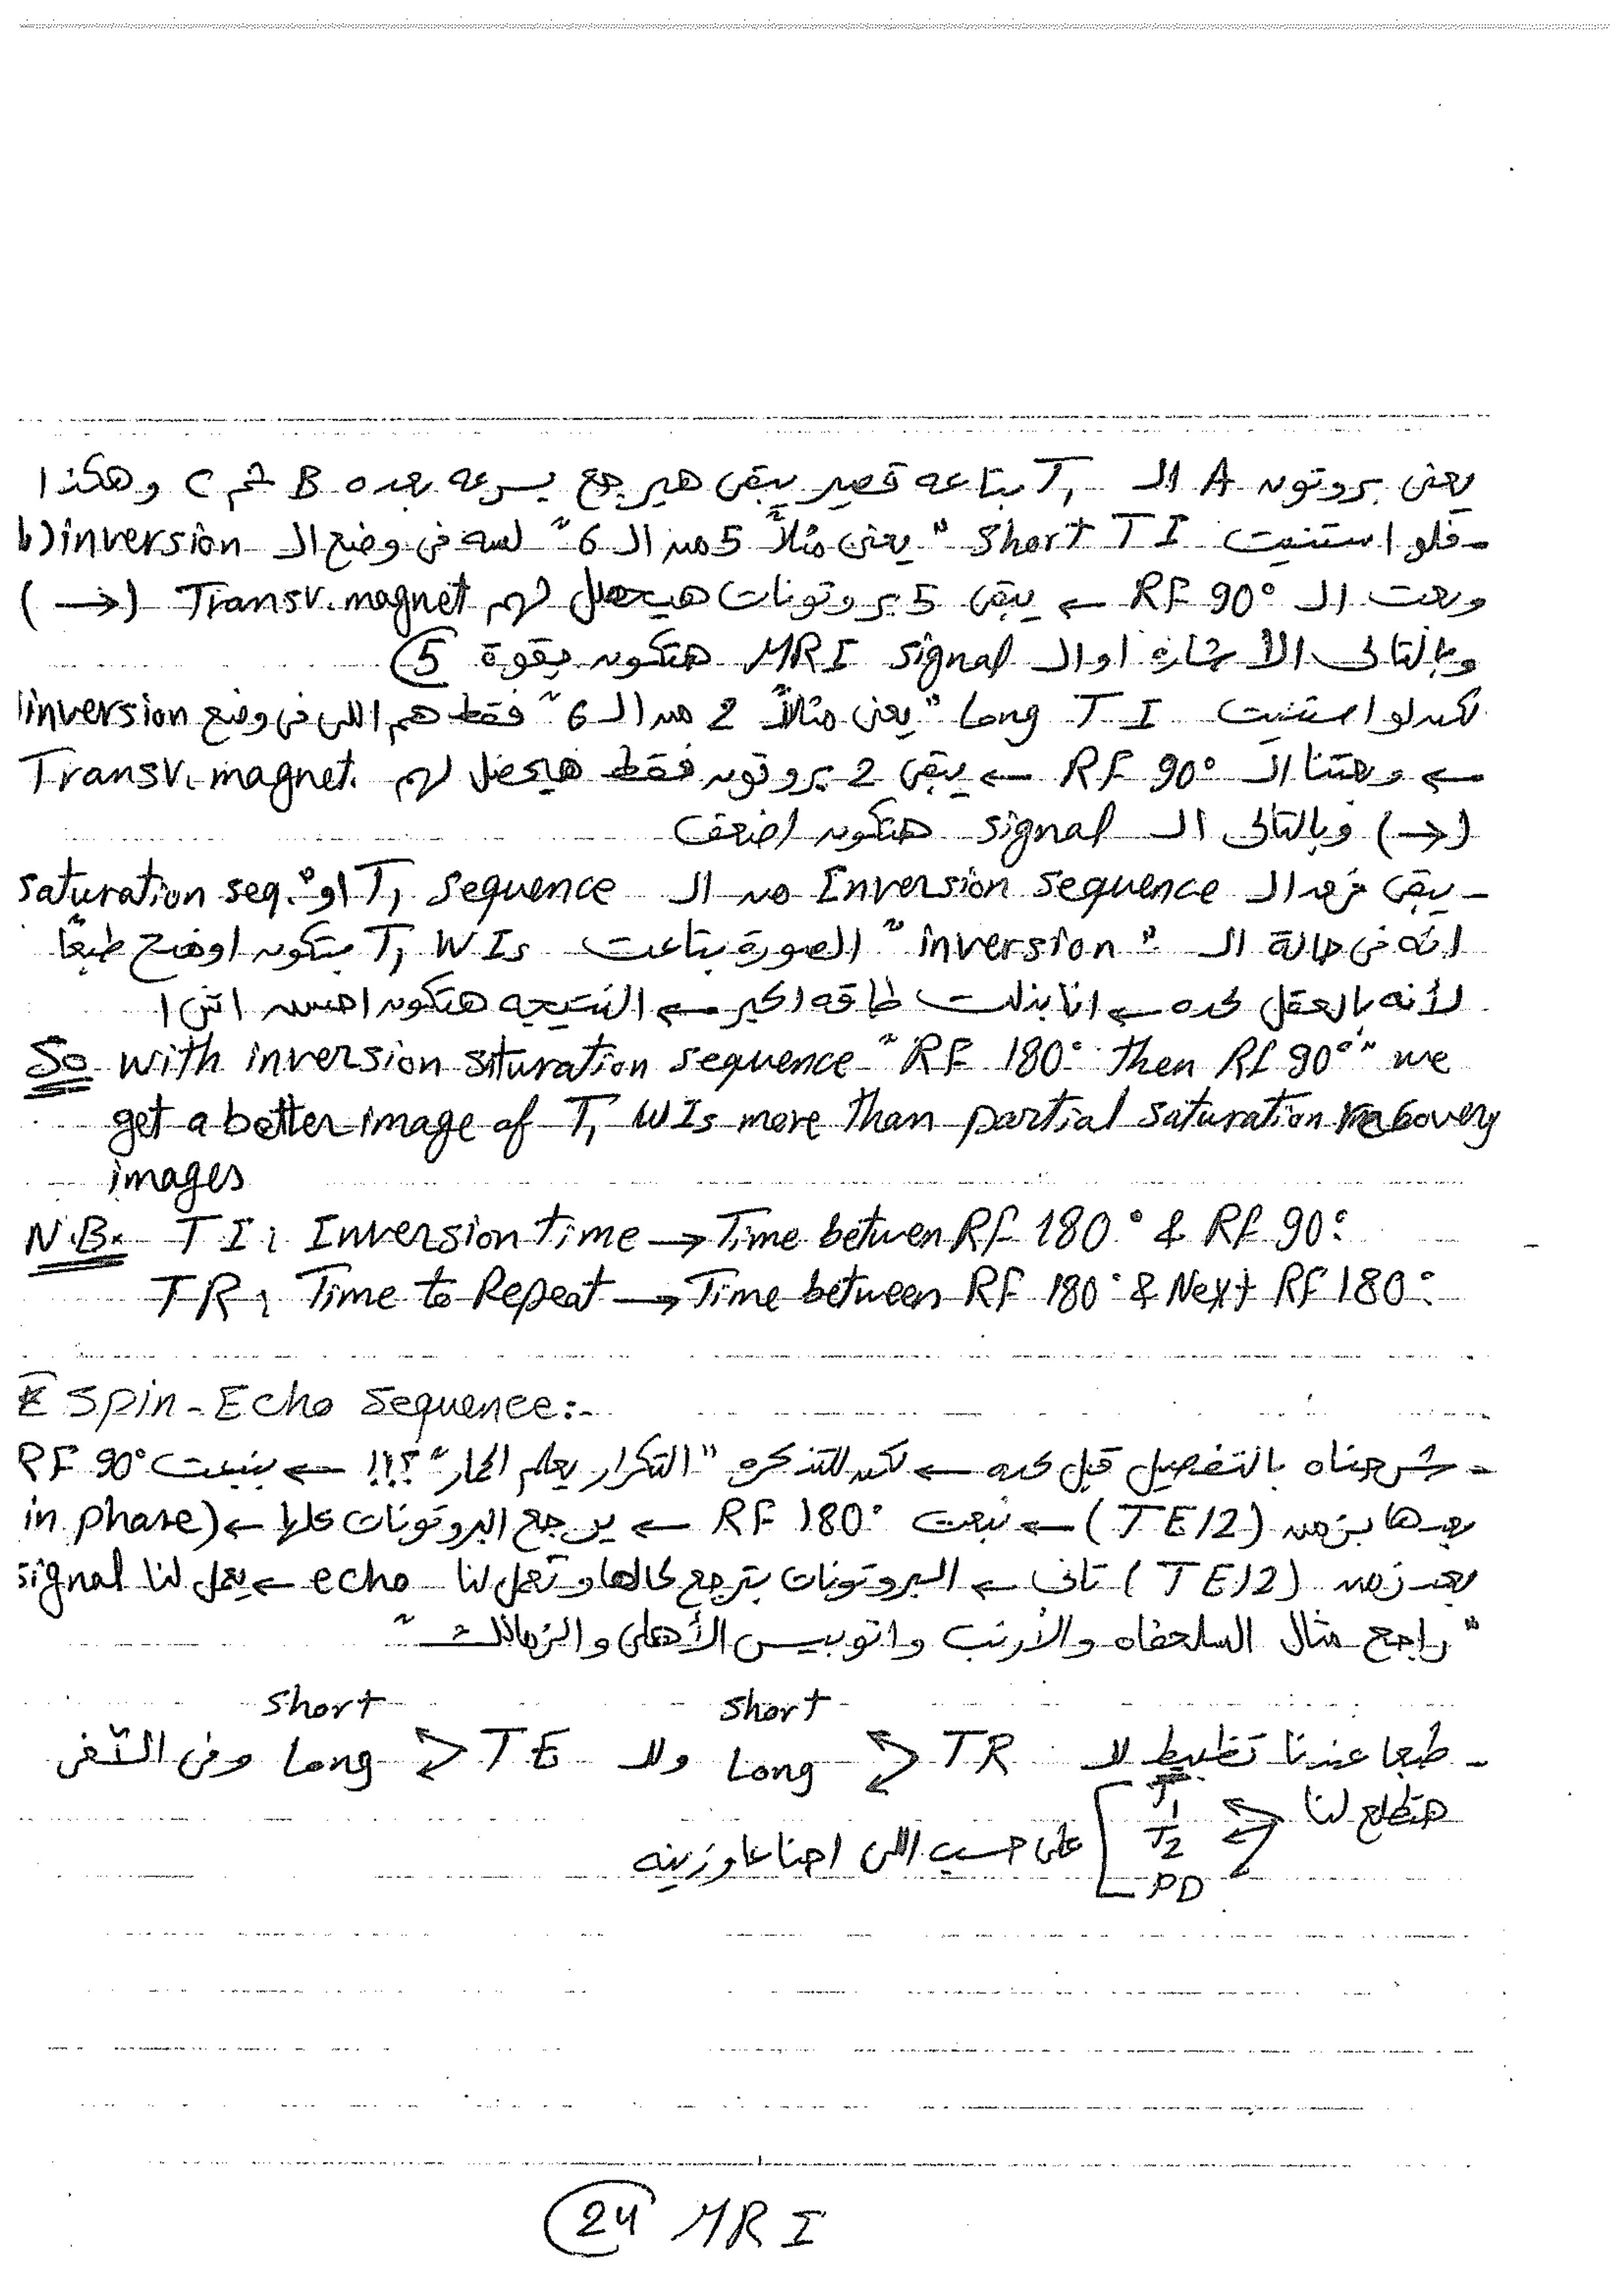 يعنى بروتون A الـ T1 بتاعه قصير يبقى هيرجع بسرعه بعده B ثم C وهكذا
- فلو استنيت Short TI "يعنى مثلاً 5 من الـ 6" لسه فى وضع الـ inversion (ا
وبعت الـ RF 90° ← يبقى 5 بروتونات هيحصل لهم Transv. magnet (→)
وبالتالى الأشاره او الـ MRI signal هتكون بقوة 5
لكن لو استنيت Long TI "يعنى مثلاً 2 من الـ 6" فقط هم اللى فى وضع inversion
← وبعتنا الـ RF 90° ← يبقى 2 بروتون فقط هيحصل لهم Transv. magnet.
(→) وبالتالى الـ signal هتكون اضعف
- يبقى فرق الـ Inversion sequence من الـ T1 sequence او "saturation seq.
انه فى حالة الـ "inversion" الصورة بتاعت T1 WIs بتكون اوضح طبعاً
لأنه بالعقل كده ← انا بذلت طاقه اكبر ← النتيجه هتكون احسن
So with inversion saturation sequence "RF 180° then Rf 90°" we
get a better image of T1 WIs more than partial saturation recovery
images
N.B. TI: Inversion time → Time betwen Rf 180° & Rf 90°
TR: Time to Repeat → Time between RF 180° & Next RF 180°
Spin-Echo Sequence:-
- شرحناه بالتفصيل قبل كده ← لكن للتذكره "التكرار يعلم الحمار"؟!! ← بنبعت RF 90°
بعدها بزمن (TE/2) ← نبعت RF 180° ← يرجع البروتونات كلها ← (in phase
بعد زمن (TE/2) تانى ← البروتونات بترجع لحالها وتعمل لنا echo ← يعمل لنا signal
"راجع مثال السلحفاه والأرنب واتوبيس الأهلى والزمالك"
short short
- طبعا عندنا تظبيط لـ TR Long ولـ TE Long وفى الآخر
هتطلع لنا T1
T2 على حسب اللى احنا عاوزينه
PD
24 MRI